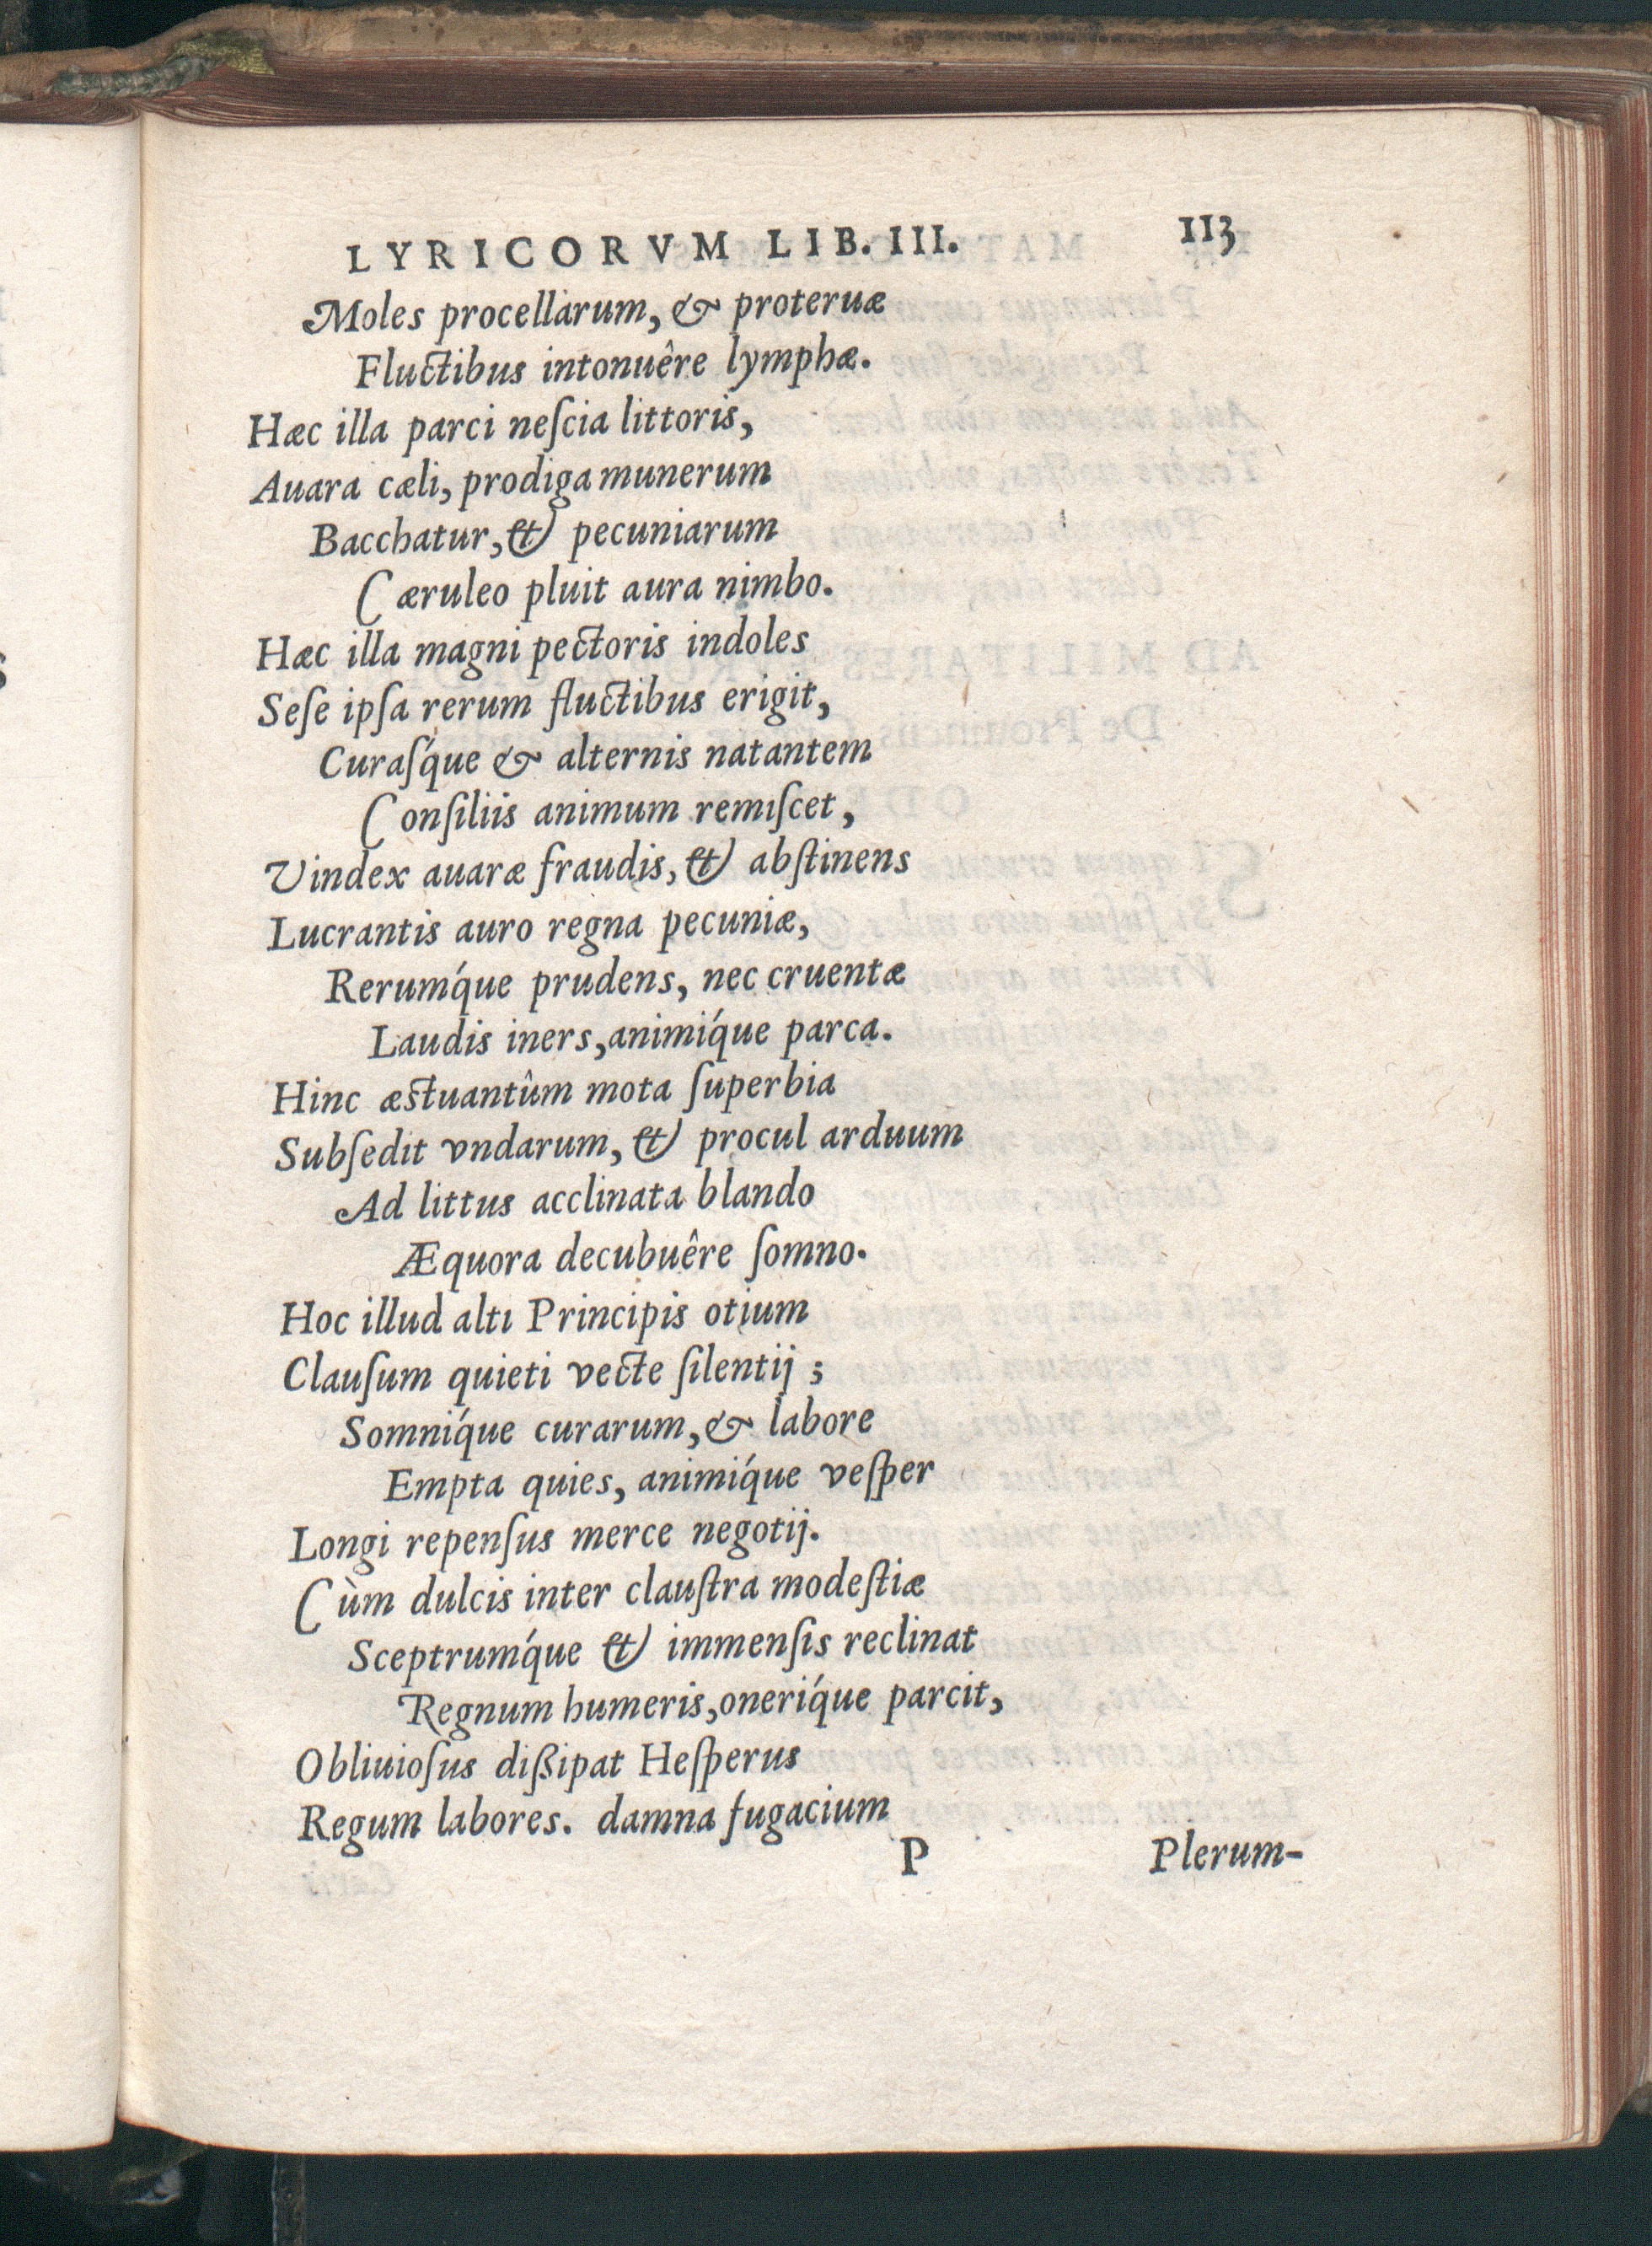 LYRICORVM LIB. III. 113
Moles procellarum, & proteruæ
Fluctibus intonuêre lymphæ.
Hæc illa parci neſcia littoris,
Auara cæli, prodiga munerum
Bacchatur, & pecuniarum
Cæruleo pluit aura nimbo.
Hæc illa magni pectoris indoles
Seſe ipſa rerum fluctibus erigit,
Curaſq́ue & alternis natantem
Conſiliis animum remiſcet,
Vindex auaræ fraudis, & abſtinens
Lucrantis auro regna pecuniæ,
Rerumq́ue prudens, nec cruentæ
Laudis iners, animiq́ue parca.
Hinc æstuantûm mota ſuperbia
Subſedit vndarum, & procul arduum
Ad littus acclinata blando
Æquora decubuêre ſomno.
Hoc illud alti Principis otium
Clauſum quieti vecte ſilentij;
Somniq́ue curarum, & labore
Empta quies, animiq́ue veſper
Longi repenſus merce negotij.
Cùm dulcis inter clauſtra modeſtiæ
Sceptrumq́ue & immenſis reclinat
Regnum humeris, oneriq́ue parcit,
Obliuioſus dißipat Heſperus
Regum labores. damna fugacium
P Plerum-